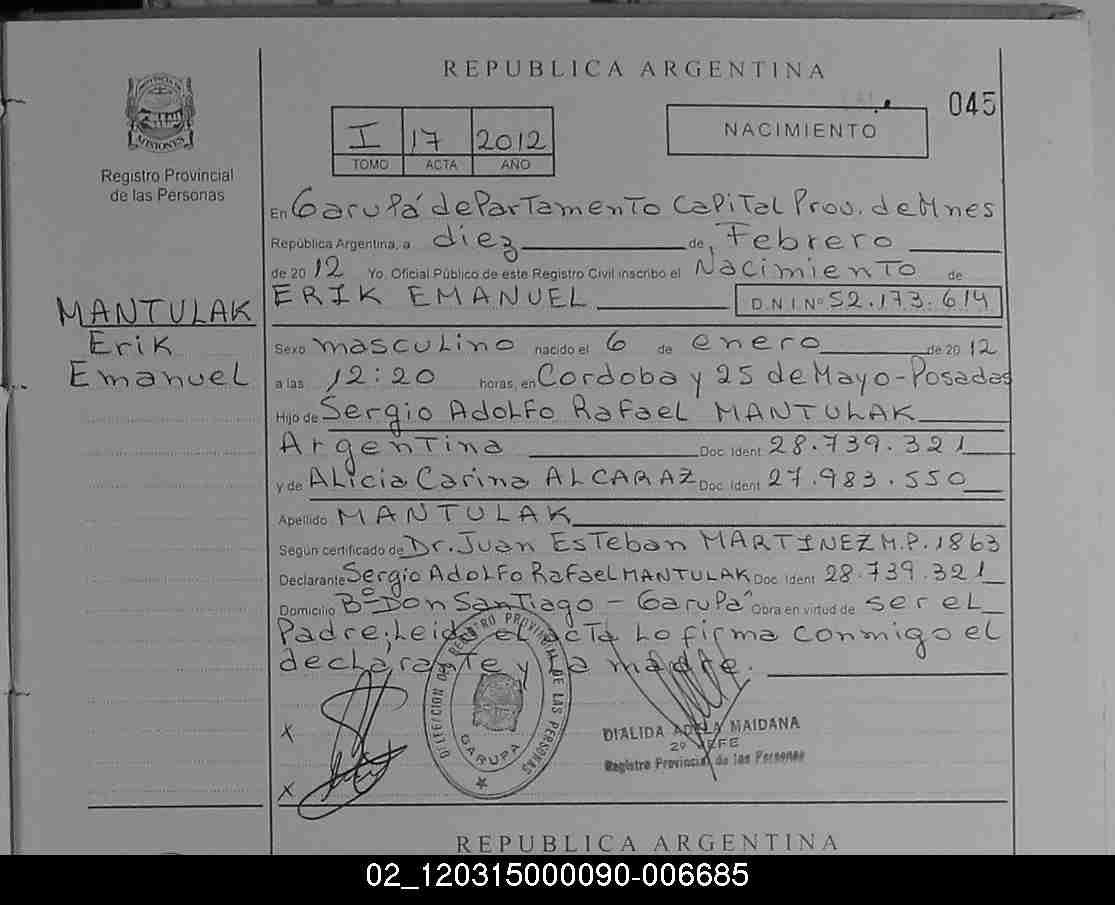 REPUBLICA ARGENTINA
045
I 17 2012
TOMO ACTA AÑO
NACIMIENTO
PROVINCIA DE MISIONES
Registro Provincial
de las Personas
MANTULAK
Erik
Emanuel
En Garupá departamento Capital Prov. de Mnes
República Argentina, a diez de Febrero
de 2012 Yo, Oficial Público de este Registro Civil inscribo el Nacimiento de
ERIK EMANUEL D.N.I. Nº 52.173.614
Sexo masculino nacido el 6 de enero de 2012
a las 12:20 horas, en Cordoba y 25 de Mayo-Posadas
Hijo de Sergio Adolfo Rafael MANTULAK
Argentina Doc. Ident 28.739.321
y de Alicia Carina ALCARAZ Doc. Ident 27.983.550
Apellido MANTULAK
Según certificado de Dr. Juan Esteban MARTINEZ M.P. 1863
Declarante Sergio Adolfo Rafael MANTULAK Doc. Ident 28.739.321
Domicilio Bº Don Santiago - Garupá Obra en virtud de ser el
Padre; Leida el acta lo firma conmigo el
declarante y la madre.
DIRECCION DEL REGISTRO PROVINCIAL DE LAS PERSONAS
GARUPA
X
X
DIALIDA ADELA MAIDANA
2º JEFE
Registro Provincial de las Personas
REPUBLICA ARGENTINA
02_120315000090-006685